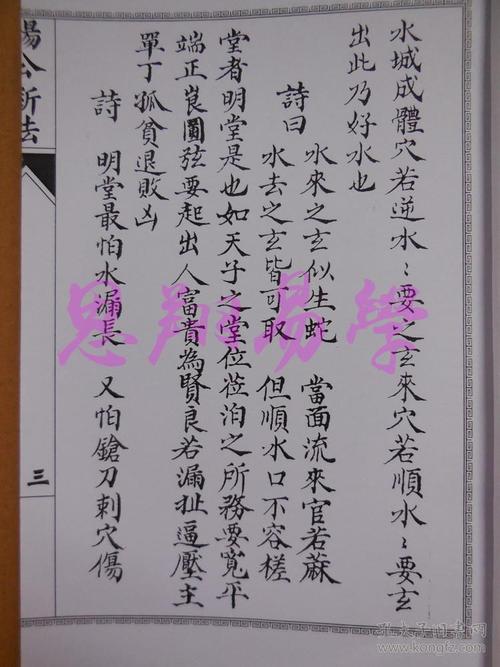 水城成體穴若逆水〻要之玄來穴若順水〻要玄
出此乃好水也
詩曰 水來之玄似生蛇 當面流來官若蔴
水去之玄皆可取 但順水口不容槎
堂者明堂是也如天子之堂位涖泊之所務要寬平
端正員圓弦要起出人富貴為賢良若漏扯逼壓主
單丁孤貧退敗凶
詩 明堂最怕水漏長 又怕鎗刀刺穴傷
楊公新法
三
恩翔易學
孔夫子旧书网
www.kongfz.com